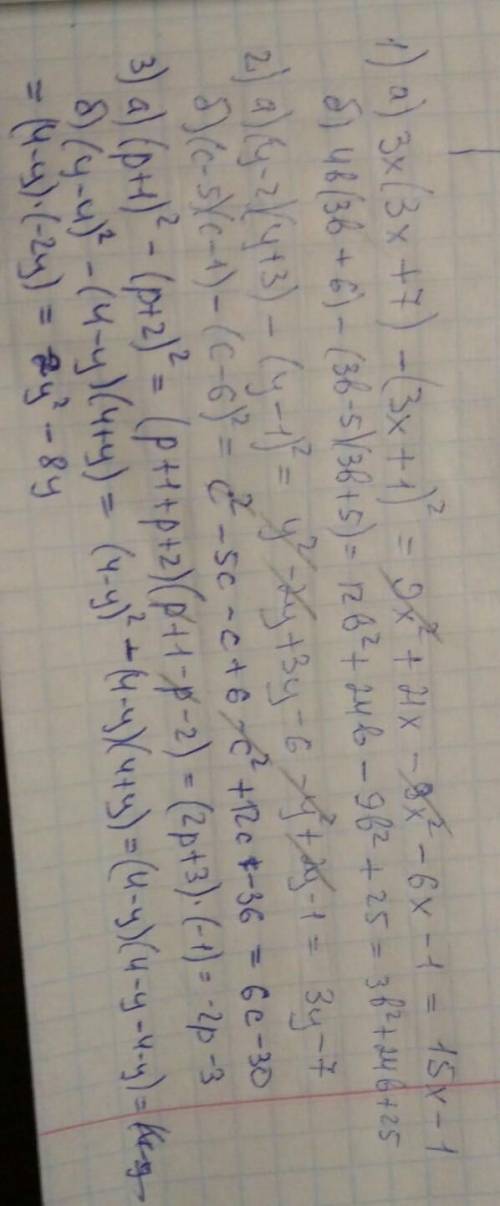 1) а) 3x(3x+7) - (3x+1)² = 9x² + 21x - 9x² - 6x - 1 = 15x - 1
б) 4в(3в+6) - (3в-5)(3в+5) = 12в² + 24в - 9в² + 25 = 3в² + 24в + 25
2) а) (y-2)(y+3) - (y-1)² = y² - 2y + 3y - 6 - y² + 2y - 1 = 3y - 7
б) (c-5)(c-1) - (c-6)² = c² - 5c - c + 6 - c² + 12c - 36 = 6c - 30
3) а) (p+1)² - (p+2)² = (p+1+p+2)(p+1-p-2) = (2p+3)·(-1) = -2p-3
б) (y-4)² - (4-y)(4+y) = (4-y)² - (4-y)(4+y) = (4-y)(4-y-4-y) =
= (4-y)·(-2y) = 2y² - 8y